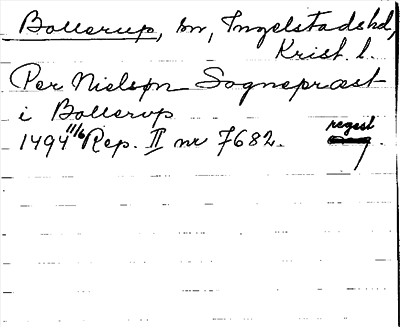 Bollerup, sn, Ingelstadshd,
Krist. l.
Per Nielsøn Sognepræst
i Bollerup
1494 11/6 Rep. II nr 7682. regest